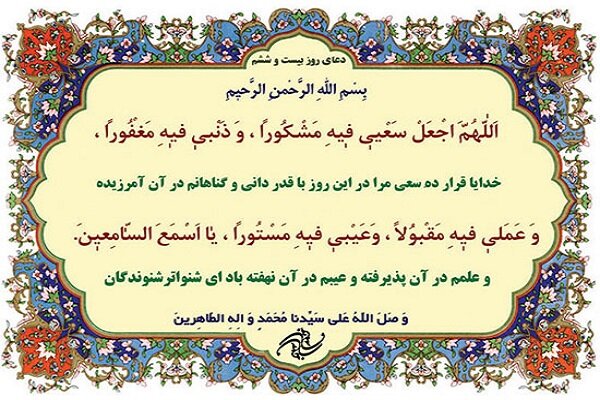 دعای روز بیست و ششم
بِسْمِ اللهِ الرَّحْمنِ الرَّحيمِ
اَللّهُمَّ اجْعَلْ سَعْيي فيهِ مَشْكُوراً ، وَ ذَنْبي فيهِ مَغْفُوراً ،
خدایا قرار ده سعی مرا در این روز با قدر دانی و گناهانم در آن آمرزیده
وَ عَمَلي فيهِ مَقْبُولاً ، وَعَيْبي فيهِ مَسْتُوراً ، يا اَسْمَعَ السّامِعينَ.
و علمم در آن پذیرفته و عیبم در آن نهفته باد ای شنواترشنوندگان
وَ صَلَ اللهُ عَلى سَيِّدِنا مُحَمَدٍ وَ الِهِ الطّاهِرينَ